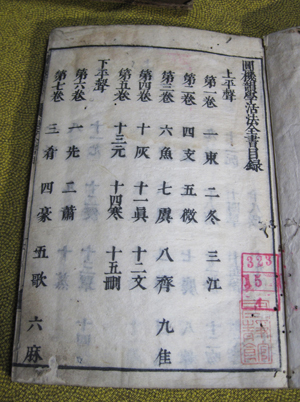 圓機韻學活法全書目錄
上平聲
第一卷 一東 二冬 三江
第二卷 四支 五微
第三卷 六魚 七虞 八齊 九佳
第四卷 十灰 十一眞 十二文
第五卷 十三元 十四寒 十五刪
下平聲
第六卷 一先 二蕭
第七卷 三肴 四豪 五歌 六麻